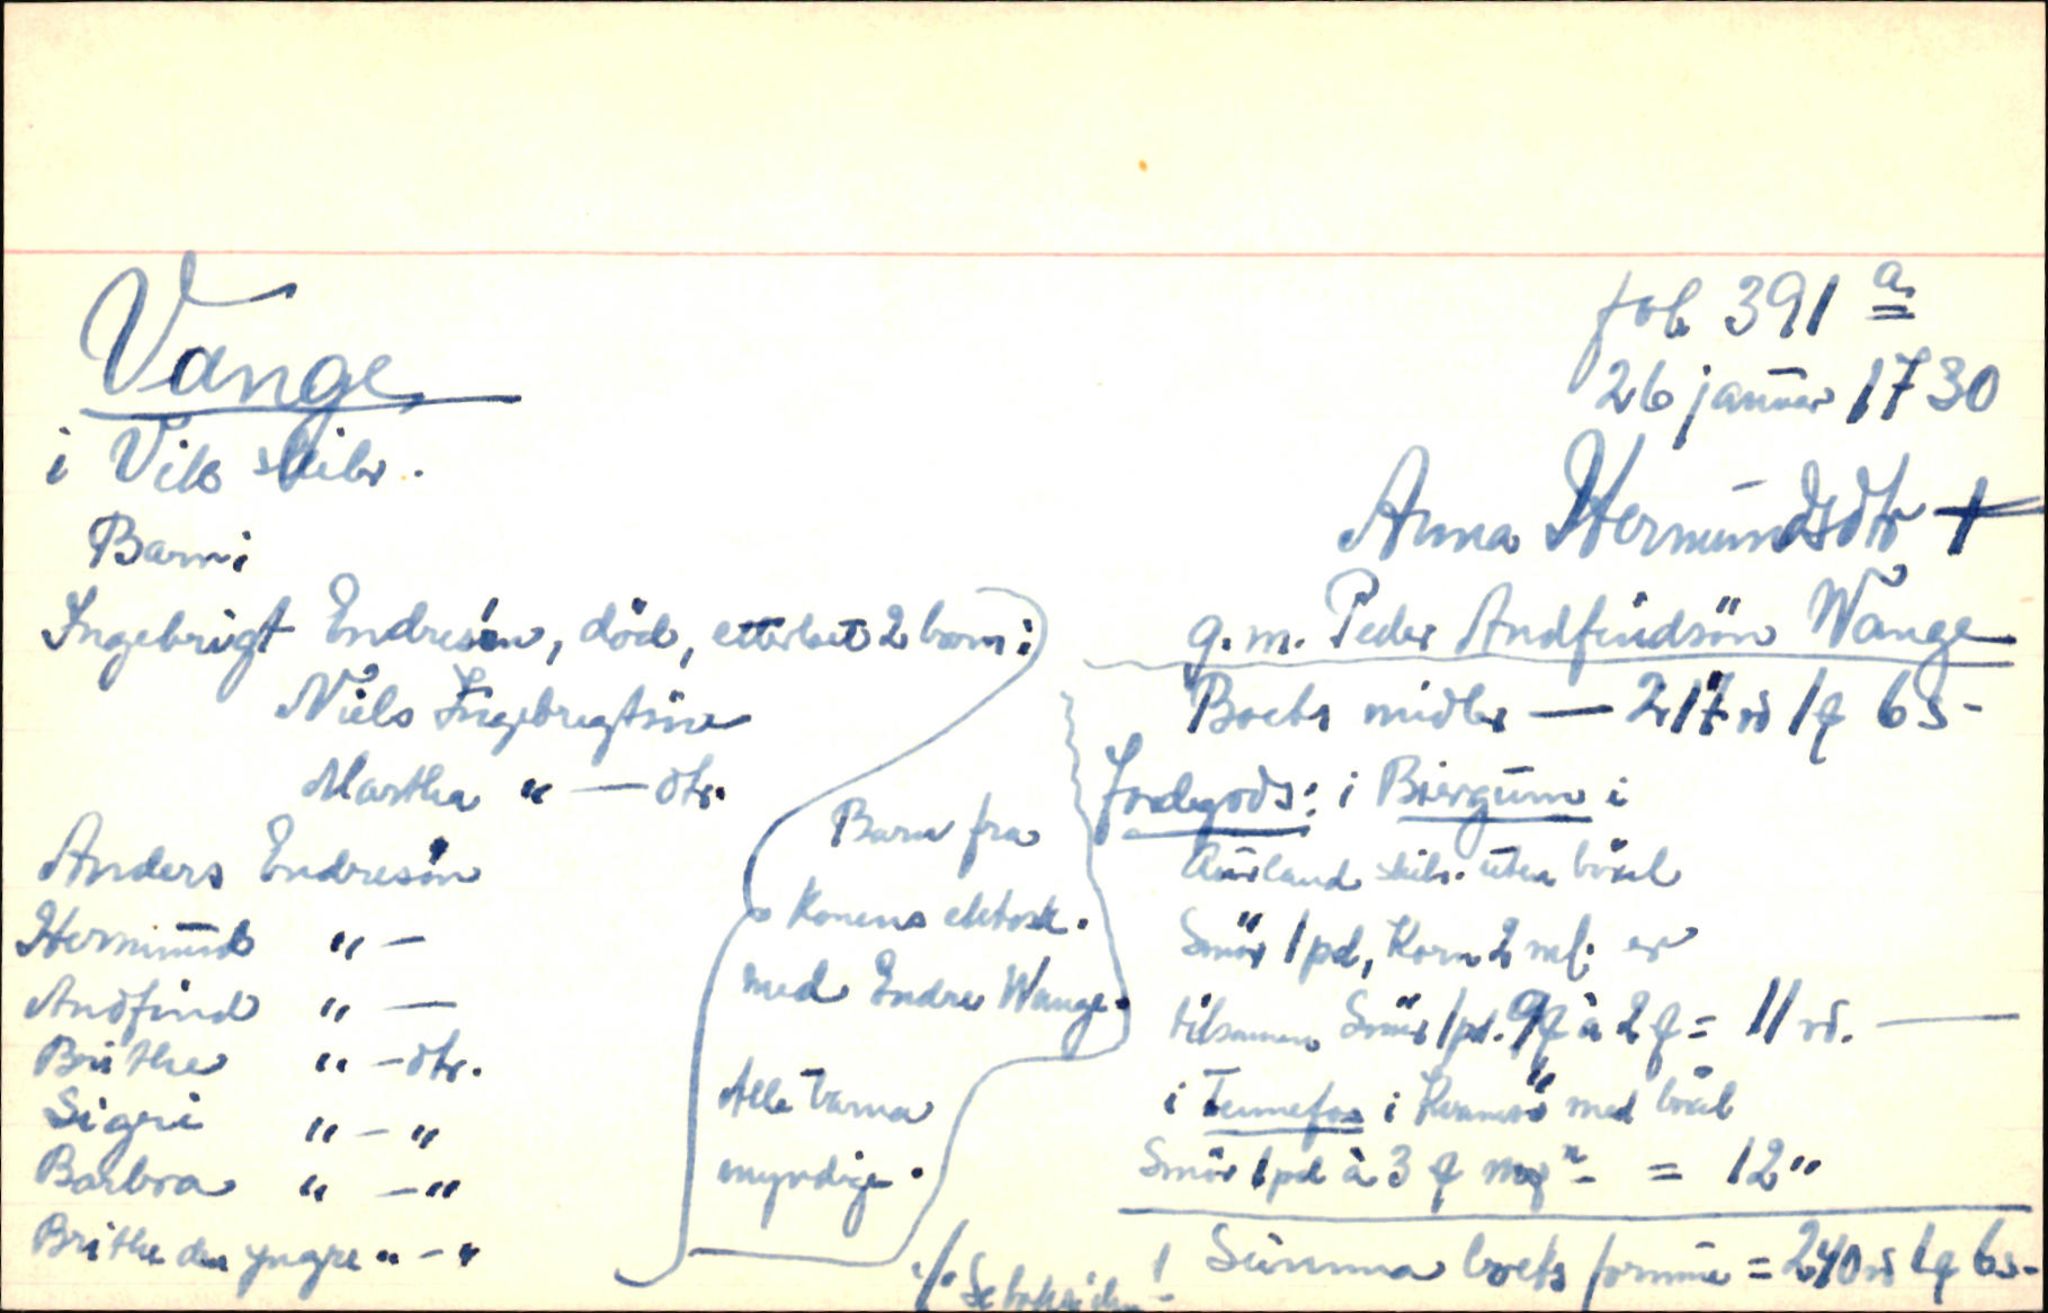 Vange
i Vik skibr.
Barn:
Ingebrigt Endresön, död, etterlot 2 barn:
Niels Ingebrigtsön
Martha " — dtr.
Anders Endresön
Hermund " —
Andfind " —
Brithe " — dtr.
Sigri " — "
Barbra " — "
Brithe den yngre " — "
Barn fra
Konens ektesk.
med Endre Wange.
Alle barna
myndige.
fol. 391 a
26 januar 1730
Anna Hermundsdtr +
g. m. Peder Andfindsön Wange
Boets midler — 217 rd 1 q 6 s -
Jordegods: i Biergum i
Aurland skibr. uten böxel
Smör 1 pd, Korn 2 mf. er
tilsammen Smör 1 pd. 9 q à 2 q = 11 rd. —
i Tennefoss i Kvamsö med böxel
Smör 1 pd à 3 q = 12 "
Summa boets formue = 240 rd 1 q 6 s -
./. Se baksiden !